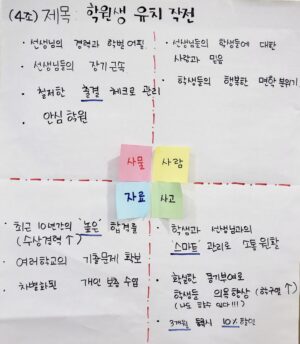 (4조) 제목: 학원생 유치 작전
· 선생님의 경력과 학벌 어필
· 선생님들의 장기근속
· 철저한 출결 체크로 관리
· 안심 학원
· 선생님들의 학생들에 대한
사랑과 믿음
· 학생들의 행복한 면학 분위기
사물
사람
자료
사고
· 최근 10년간의 "높은" 합격률
(수상경력 ↑)
· 여러학교의 기출문제 확보
· 차별화된 개인 보충 수업
· 학생과 선생님과의
"스마트" 관리로 소통 원활
· 확실한 동기부여로
학생들 의욕향상 (학구열 ↑)
(나도 할수 있다!!!)
· 3개월 등록시 10% 할인